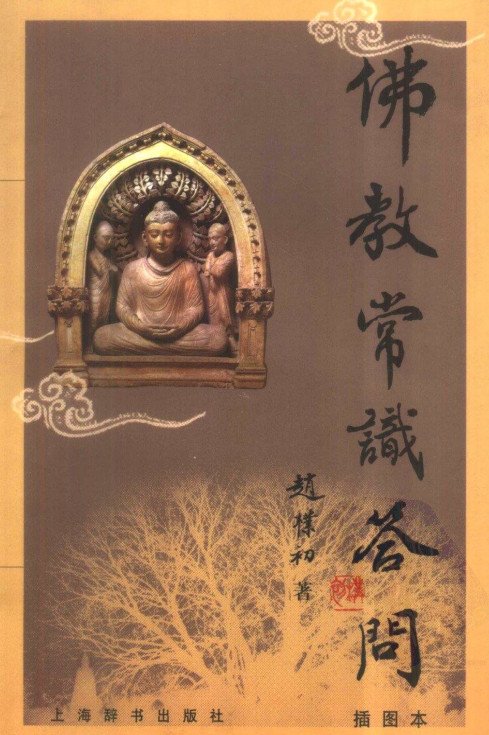 佛教常識答問
趙樸初著
樸初
上海辞书出版社
插图本